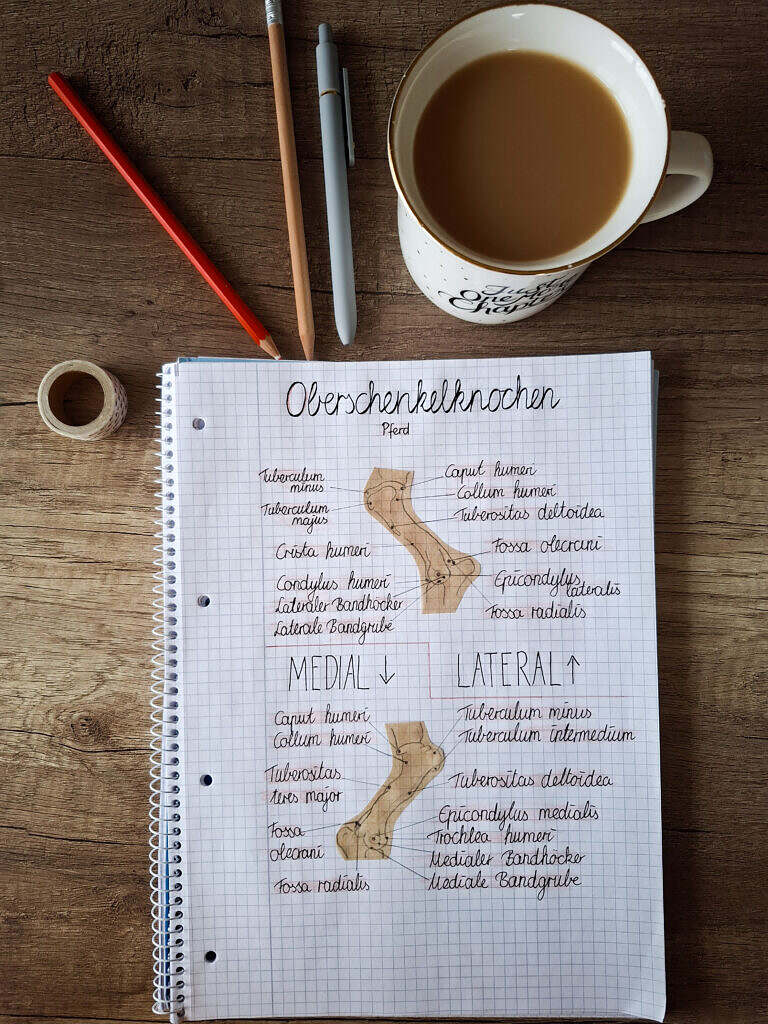 One More
Chapter
Oberschenkelknochen
Pferd
Tuberculum
minus
Tuberculum
majus
Crista humeri
Condylus humeri
Lateraler Bandhöcker
Laterale Bandgrube
Caput humeri
Collum humeri
Tuberositas deltoidea
Fossa olecrani
Epicondylus
lateralis
Fossa radialis
MEDIAL ↓
LATERAL ↑
Caput humeri
Collum humeri
Tuberositas
teres major
Fossa
olecrani
Fossa radialis
Tuberculum minus
Tuberculum intermedium
Tuberositas deltoidea
Epicondylus medialis
Trochlea humeri
Medialer Bandhöcker
Mediale Bandgrube